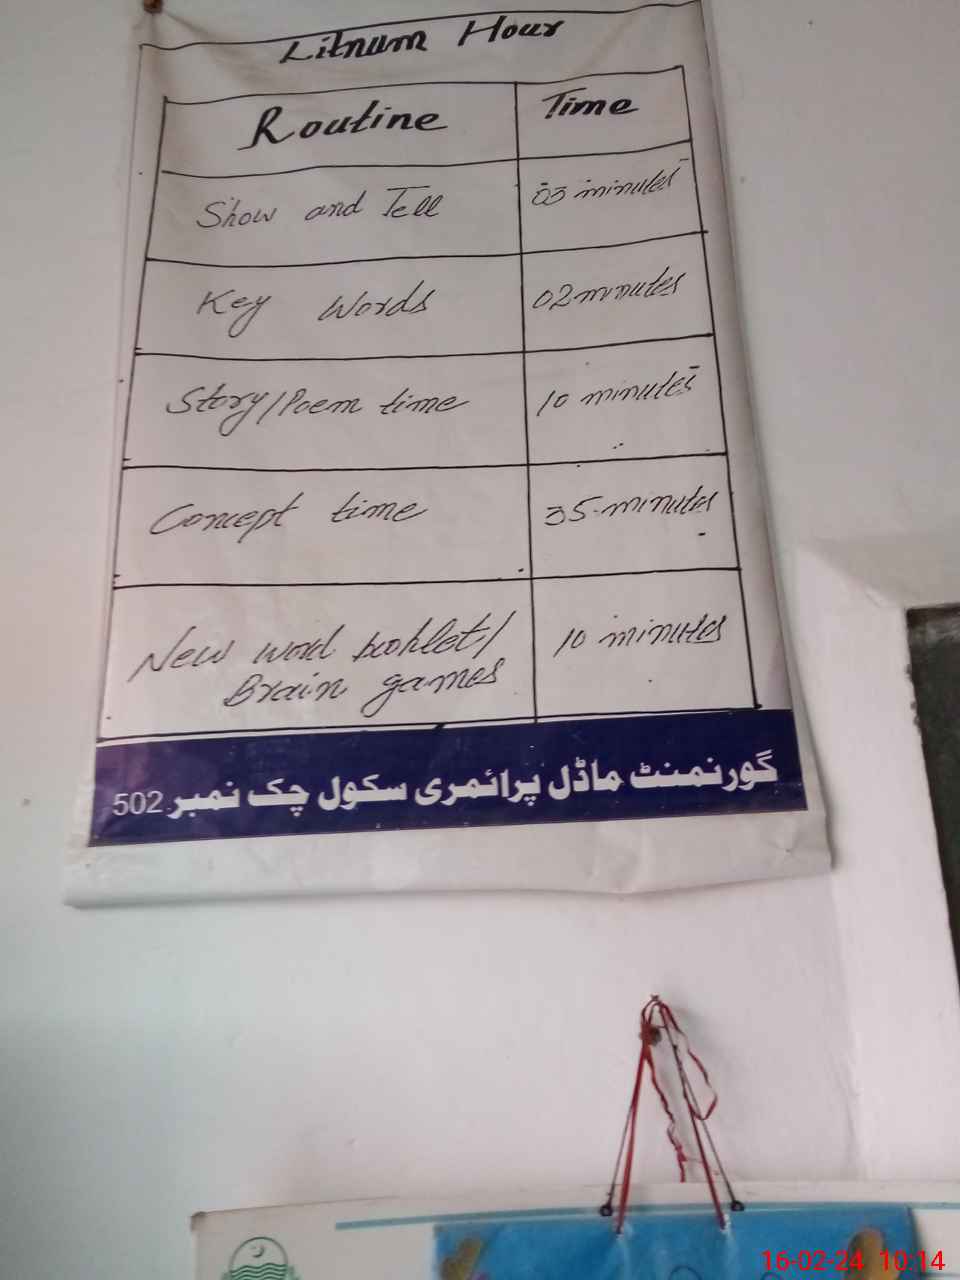 Litnum Hour
Routine Time
Show and Tell 03 minutes
Key Words 02 minutes
Story/Poem time 10 minutes
Concept time 35 minutes
New word booklet/ 10 minutes
Brain games
گورنمنٹ ماڈل پرائمری سکول چک نمبر 502
16-02-24 10:14